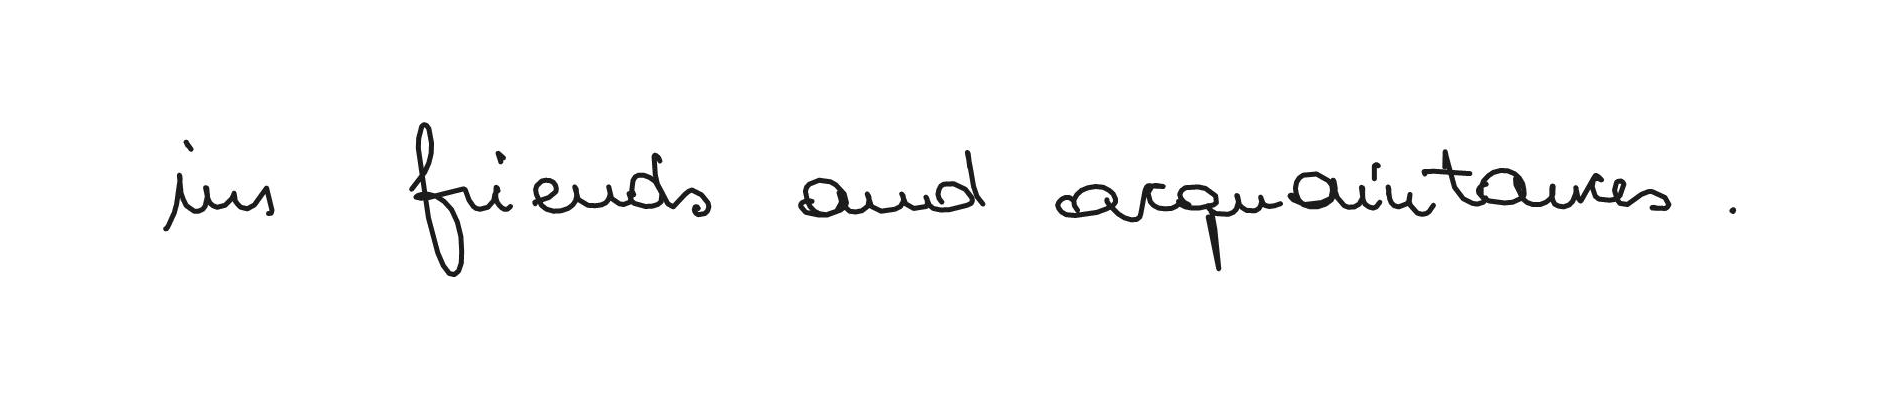 ins friends and acquaintances .